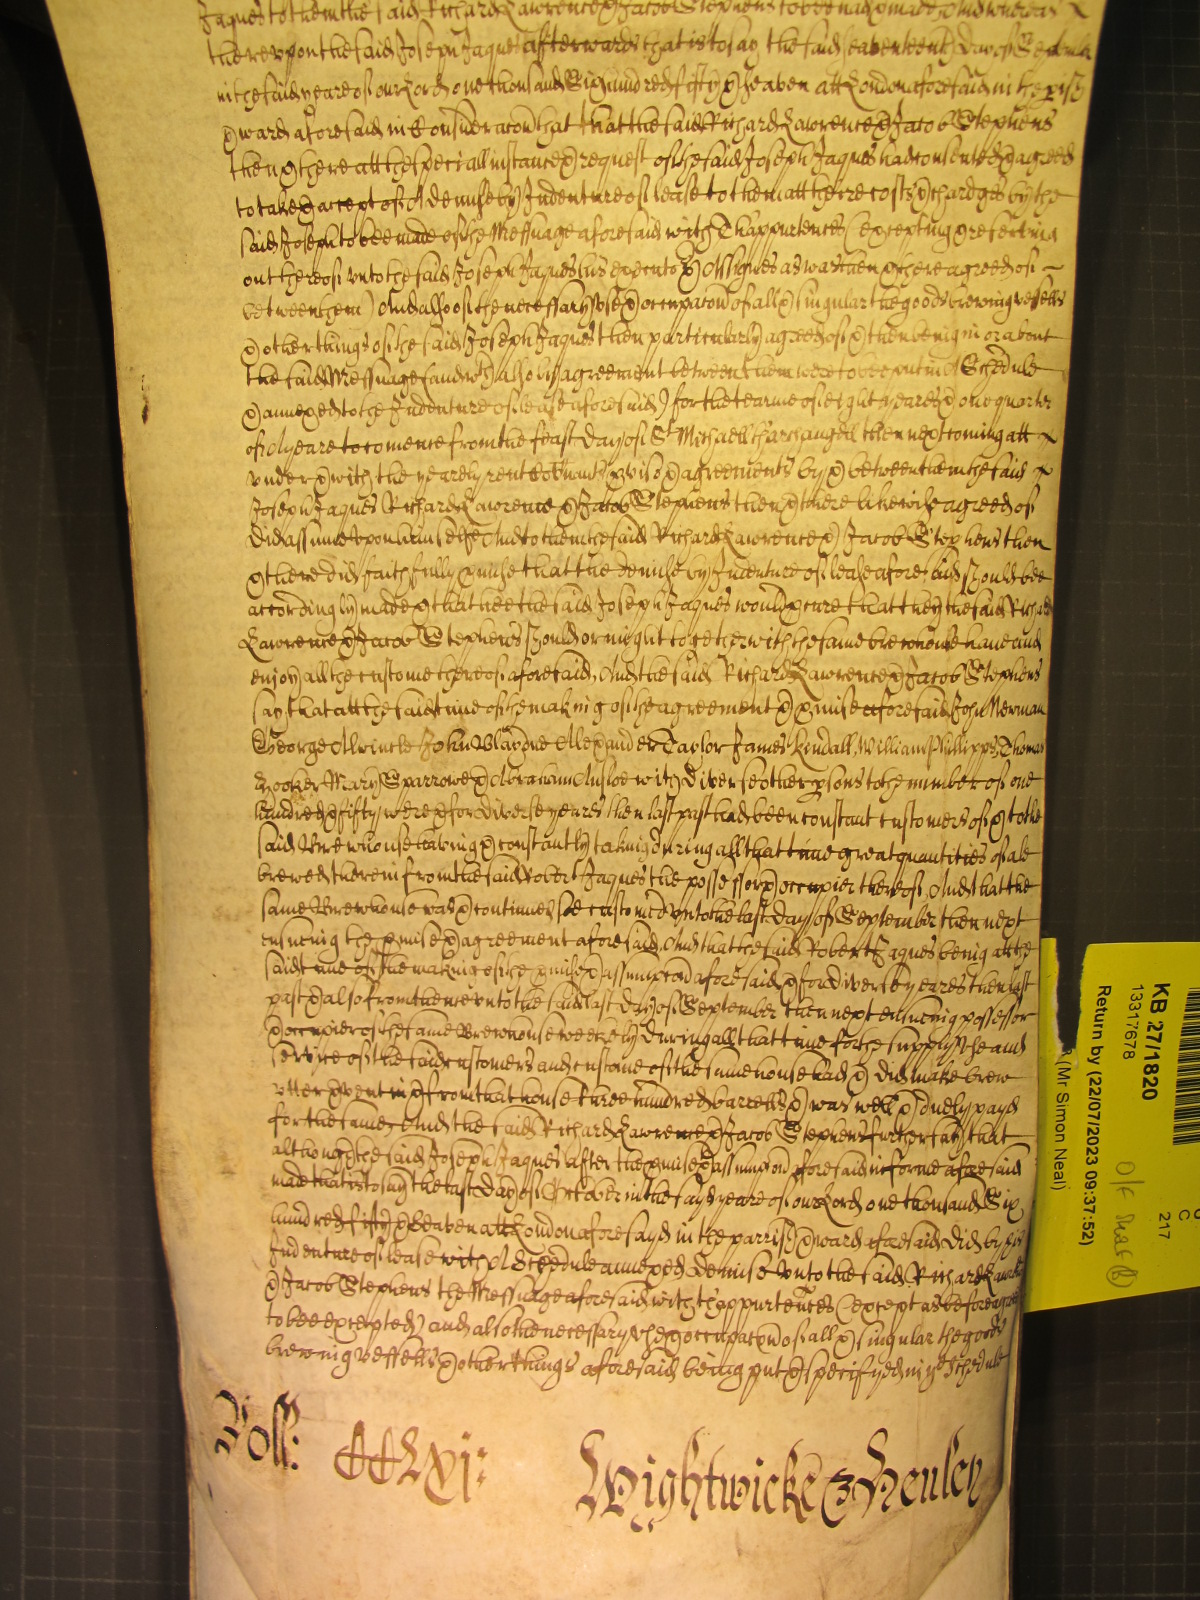 Jaques to them the said Richard Lawrence & Jacob Stephens to bee had & made And whereas
therevpon the said Joseph Jaques afterwards that is to say the said seaventeenth day of September
in the said yeare of our Lord one thousand Six hundred fifty & seaven att London aforesaid in the prish
& ward aforesaid in Consideracon that the said Richard Lawrence & Jacob Stephens
then & there att the speciall instance & request of the said Joseph Jaques had consented & agreed
to take & accept of A demise by Indenture of lease to them att theire costs & chardges by the
said Joseph to bee made of the Messuage aforesaid with Thappurtences (excepting & reserving
out thereof vnto the said Joseph Jaques his executo & Assignes as was then & there agreed of
betweene them) And alsoe of the necessary vse & occupacon of all & singular the goods brewing vessells
& other things of the said Joseph Jaques then particularly agreed of & then being in or about
the said Messuage (and wch also by agreement betweene them were to bee put in A Schedule
& annexed to the Indenture of lease aforesaid) for the tearme of eight yeares & one quarter
of A yeare to comence from the feast day of St Michaell Tharchangell then next coming att
vnder & with the yearely rent & agreements by & betweene them the said
Joseph Jaques Richard Lawrence & Jacob Stephens then & there likewise agreed of
Did assume vpon himselfe And to them the said Richard Lawrence & Jacob Stephens then
& there did faithfully pmise that the demise by Indenture of lease aforesaid should bee
accordingly made & that hee the said Joseph Jaques would pcure that they the said Richard
Lawrence & Jacob Stephens should or might together with the same brewhouse have and
enjoy all the custome thereof aforesaid, And the said Richard Lawrence & Jacob Stephens
say that att the said time of the making of the agreement & pmise aforesaid John Merman
George Alwincle John Blavone Alexander Taylor James Kendall, William Phillipps Thomas
Hooker Mary Sparrowe & Abraham Ansloe with diverse other psons to the number of one
hundred & fifty were & for diverse yeares then last past had been constant customers of & to the
said Brewhouse having & constantly taking during all that time great quantities of ale
brewed therein from the said Robert Jaques the possessor & occupier thereof, And that the
same Brewhouse was & continued soe customed vnto the last day of September then next
ensueing the pmise & agreement aforesaid, And that the said Robert Jaques being att the
said time of the making of the pmise & assumpcon aforesaid & for diverse yeares then last
past & also from thence vnto the said last day of September then next ensueing possessor
& occupier of the same Brewhouse weekely during all that time for the supply vse and
service of the said customers and custome of the same house had & did make brew
vtter & vent in & from that house three hundred barrells & was well & duely payd
for the same And the said Richard Lawrence & Jacob Stephens further say that
although the said Joseph Jaques after the pmise & assumpcon aforesaid in forme aforesaid
made that is to say the last day of October in the sayd yeare of our Lord one thousand Six
hundred fifty & seaven att London aforesayd in the parrish & ward aforesaid did by his
Indenture of lease with A Schedule annexed Demise vnto the said Richard Lawrence
& Jacob Stephens the Messuage aforesaid with thappurtences (except as before agreed
to bee excepted) and also the necessary vse & occupacon of all & singular the goods
brewing vessells & other things aforesaid being put & specifyed in ye Schedule
Roll: CCLxj:
Wightwicke & Henley
KB 27/1820
1317678
Return by (22/07/2023 09:37:52)
R (Mr Simon Neal)
C
217